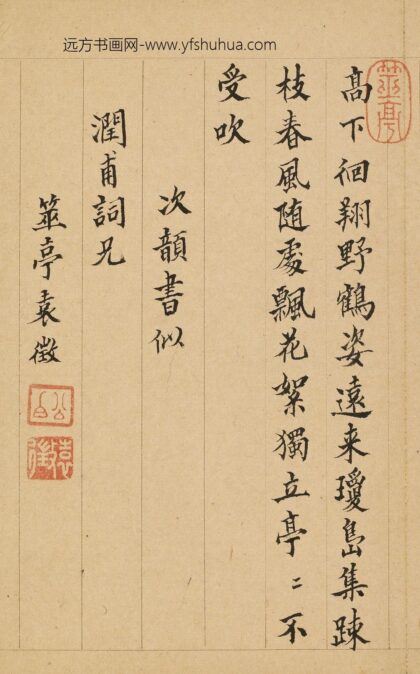 远方书画网-www.yfshuhua.com
高下徊翔野鶴姿遠来瓊島集踈
枝春風随處飄花絮獨立亭〻不
受吹
次韻書似
潤甫詞兄
筮亭袁徵
筮亭
公白
袁徵